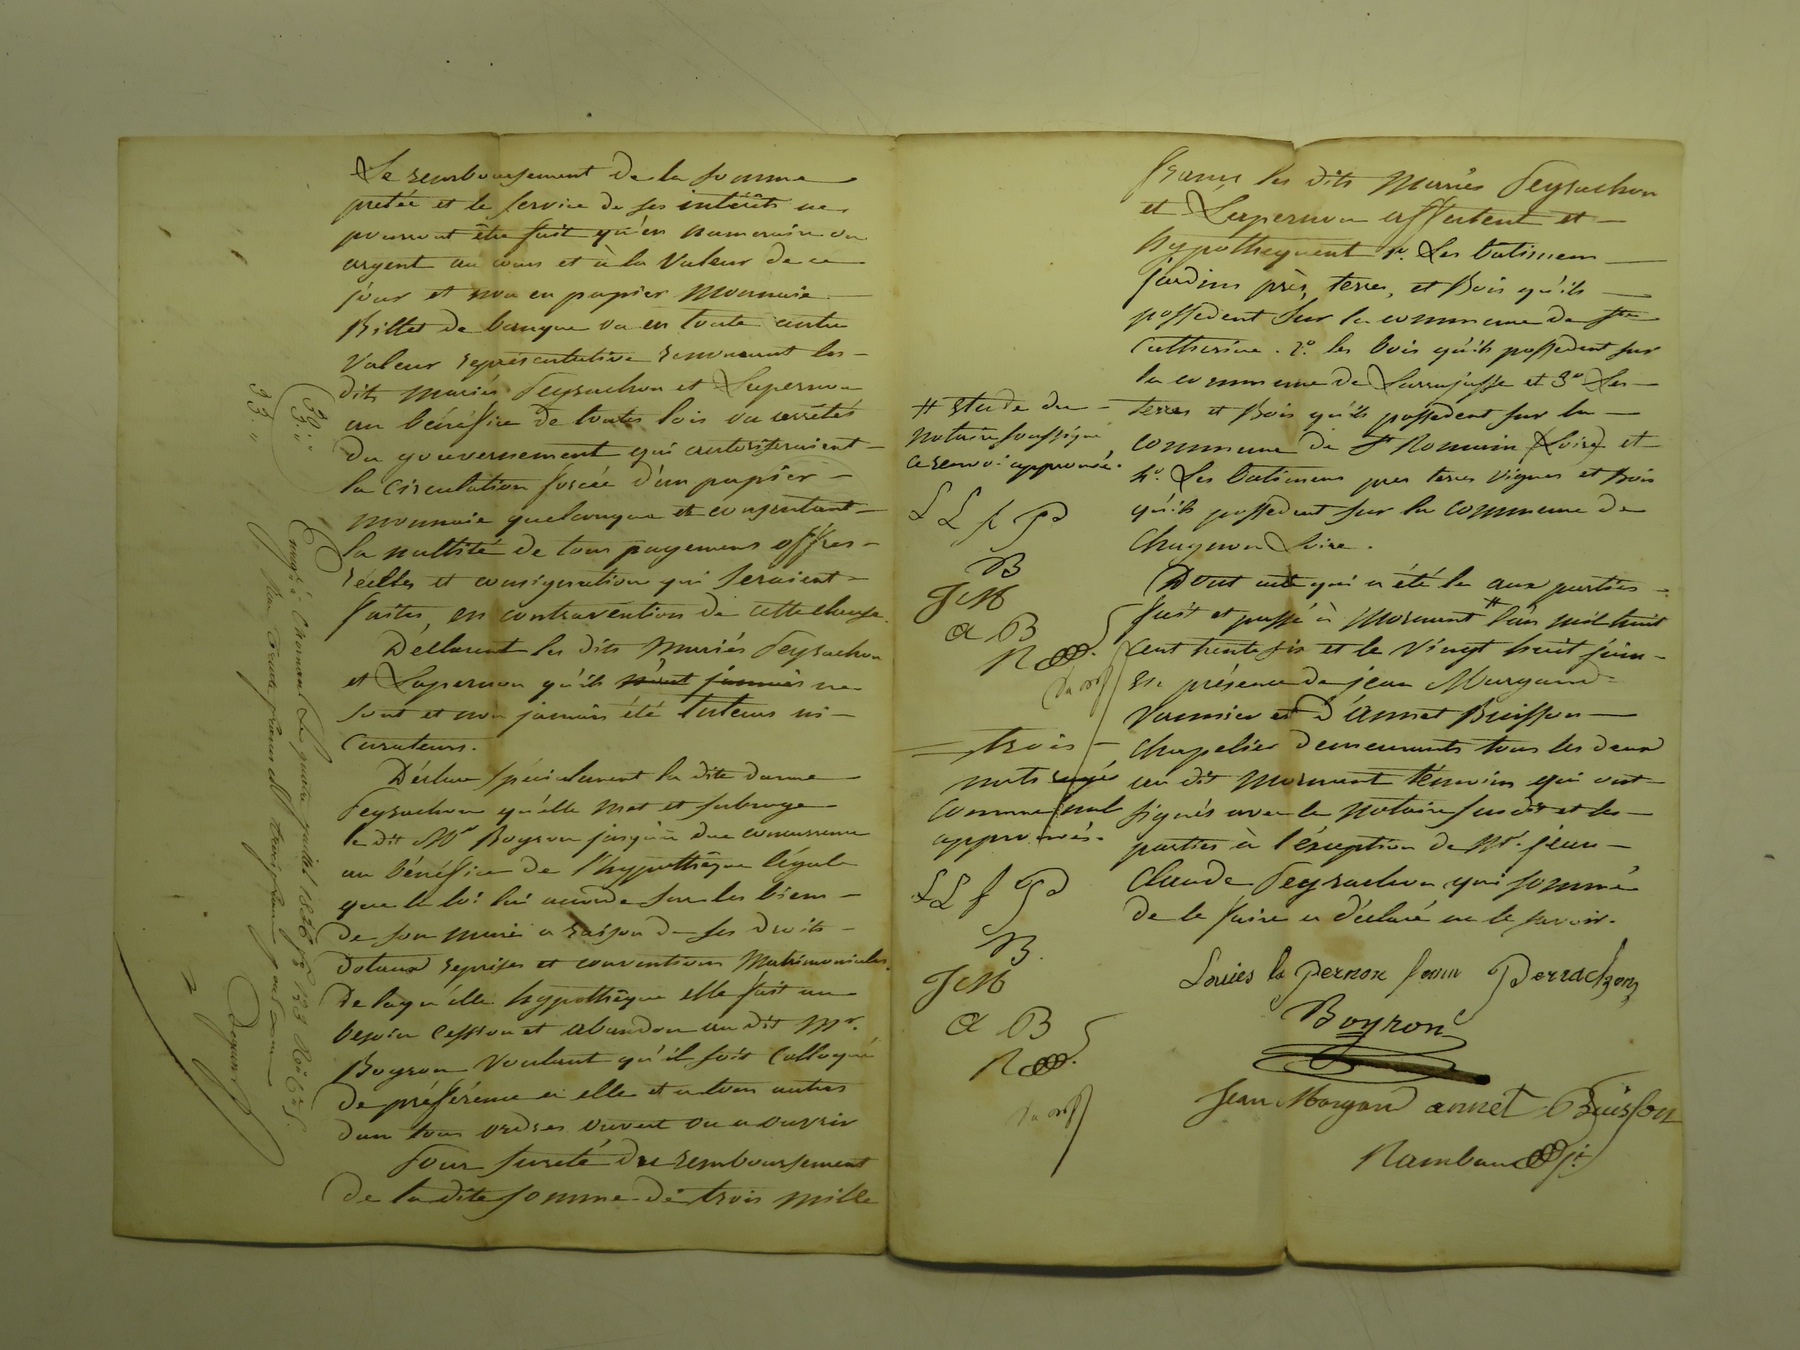 Le remboursement de la somme
pretée et le service de ses intérêts ne
pourront être fait qu'en numeraire ou
argent au cours et à la Valeur de ce
jour et non en papier Monnaie
Billet de banque ou en toute autre
Valeur représentative renoncent les
dits Mariés Peyrachon et Lapernon
au bénéfice de toutes lois ou arrêtés
du gouvernement qui autoriseraient
la circulation forcée d'un papier
monnaie quelconque et consentant
la nullité de tous payemens offres
réelles et consignation qui seraient
faites, en contravention de cette clause.
Déclarent les dits Mariés Peyrachon
et Lapernon qu'ils n'ont jamais ne
sont et non jamais été tuteurs ni
curateurs.
Déclare spécialement la dite dame
Peyrachon qu'elle met et subroge
le dit Mr Boyron jusqu'à due concurrence
au bénéfice de l'hypothèque légale
que la loi lui accorde sur les biens
de son mari a raison de ses droits
dotaux reprises et conventions Matrimoniales.
De laqu'elle hypothèque elle fait au
besoin cession et abandon au dit Mr.
Boyron Voulant qu'il soit Colloqué
de préférence à elle et a tous autres
dans tous ordres ouvert ou a ouvrir
Pour sureté du remboursement
de la dite somme de trois mille
33. "
33. "
Enregé à Mornant Le quatre juillet 1836 fo 173 Ro C 6
trois francs
francs les dits Mariés Peyrachon
et Lapernon affectent et
hypothequent 1o. Les batimens
jardins près, terres, et Bois qu'ils
possedent sur la commune de Ste
Catherine. 2o. les bois qu'ils possedent sur
la commune de Larrajasse et 3o Les
terres et Bois qu'ils possedent sur la
commune de St Romain (Loire) et
4o. Les batimens pres terres Vignes et Bois
qu'ils possedent sur la commune de
Chagnon Loire.
Dont acte qui a été lu aux parties
fait et passé à Mornant # l'an mil huit
cent trente six et le Vingt huit juin
En présence de jean Morgand
Vannier et d'Annet Buisson
Chapelier demeurants tous les deux
au dit Mornant témoins qui ont
signés avec le notaire susdit et les
parties à l'éxception de Mr. jean
Claude Peyrachon qui sommé
de le faire a déclaré ne le savoir.
# Etude du
Notaire soussigné
ce renvoi approuvé.
L L f P
B
J M
a B
R
trois
mots rayés
comme nul
approuvés.
L L f P
B.
J M
a B
R
Louies la Pernon fam Perrachon
Boyron
Jean Morgand annet Buisson
Rambaud